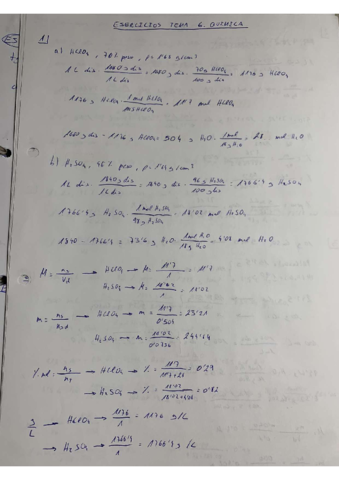 EJERCICIOS TEMA 6 QUÍMICA
1)
a) HClO4, 70% peso, ρ = 1'68 g/cm³
1 L dis · 1680 g dis / 1 L dis = 1680 g dis · 70 g HClO4 / 100 g dis = 1176 g HClO4
1176 g HClO4 · 1 mol HClO4 / HClO4 = 11'7 mol HClO4
1680 g dis - 1176 g HClO4 = 504 g H2O · 1 mol / 18 g H2O = 28 mol H2O
b) H2SO4, 96% peso, ρ = 1'84 g/cm³
1 L dis · 1840 g dis / 1 L dis = 1840 g dis · 96 g H2SO4 / 100 g dis = 1766'4 g H2SO4
1766'4 g H2SO4 · 1 mol H2SO4 / 98 g H2SO4 = 18'02 mol H2SO4
1840 - 1766'4 = 73'6 g H2O · 1 mol H2O / 18 g H2O = 4'08 mol H2O
M = → HClO4 → M = 11'7 / 1 = 11'7
H2SO4 → M = 18'02 / 1 = 18'02
m = → HClO4 → m = 11'7 / 0'504 = 23'21
H2SO4 → m = 18'02 / 0'0736 = 244'84
χ = → HClO4 → χ = 11'7 / 11'7+28 = 0'29
→ H2SO4 → χ = = 0'82
g/L → HClO4 → 1176 / 1 = 1176 g/L
→ H2SO4 → 1766'4 / 1 = 1766'4 g/L